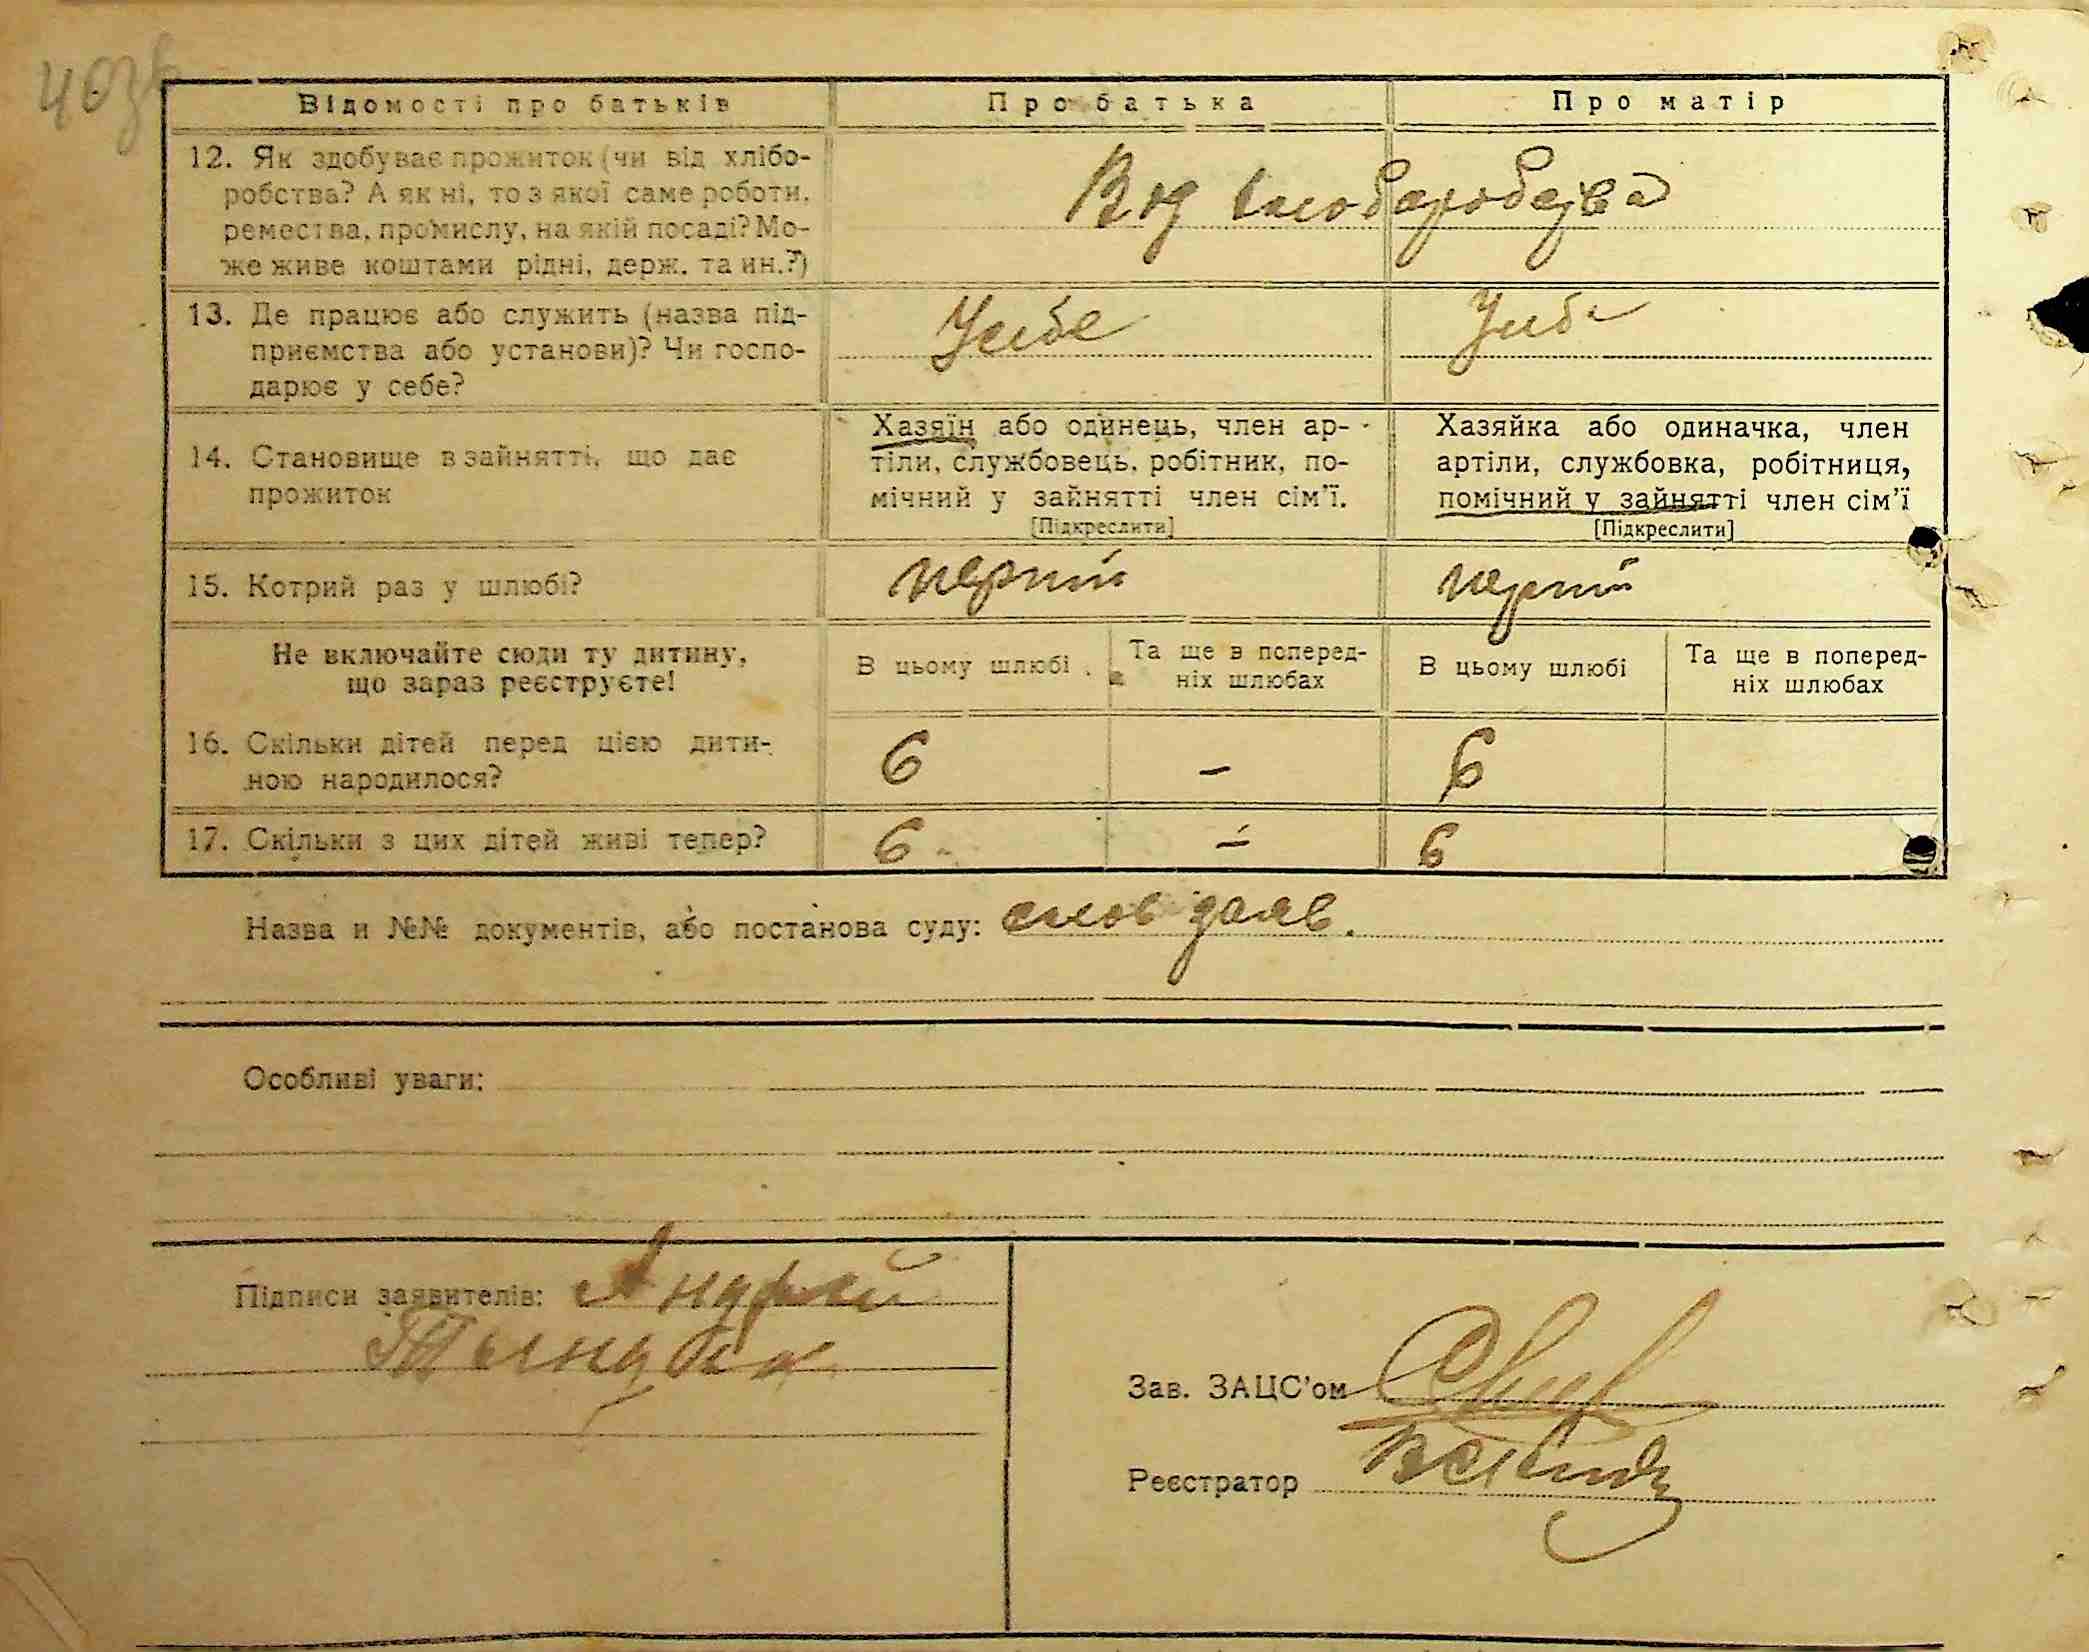 403
Відомості про батьків Про батька Про матір
12. Як здобуває прожиток (чи від хлібо-
робства? А як ні, то з якої саме роботи,
ремества, промислу, на якій посаді? Мо-
же живе коштами рідні, держ. та ин.?)
Від
13. Де працює або служить (назва під-
приємства або установи)? Чи госпо-
дарює у себе?
Усебе Усебе
14. Становище в зайнятті, що дає
прожиток
Хазяїн або одинець, член ар-
тіли, службовець, робітник, по-
мічний у зайнятті член сім'ї.
[Підкреслити]
Хазяйка або одиначка, член
артіли, службовка, робітниця,
помічний у зайнятті член сім'ї
[Підкреслити]
15. Котрий раз у шлюбі? перший перший
Не включайте сюди ту дитину,
що зараз реєструєте!
В цьому шлюбі
Та ще в поперед-
ніх шлюбах
В цьому шлюбі
Та ще в поперед-
ніх шлюбах
16. Скільки дітей перед цією дити-
ною народилося?
6 – 6
17. Скільки з цих дітей живі тепер? 6 – 6
Назва и №№ документів, або постанова суду: слов заяв.
Особливі уваги:
Підписи заявителів: Андрей
Зав. ЗАЦС'ом
Реєстратор